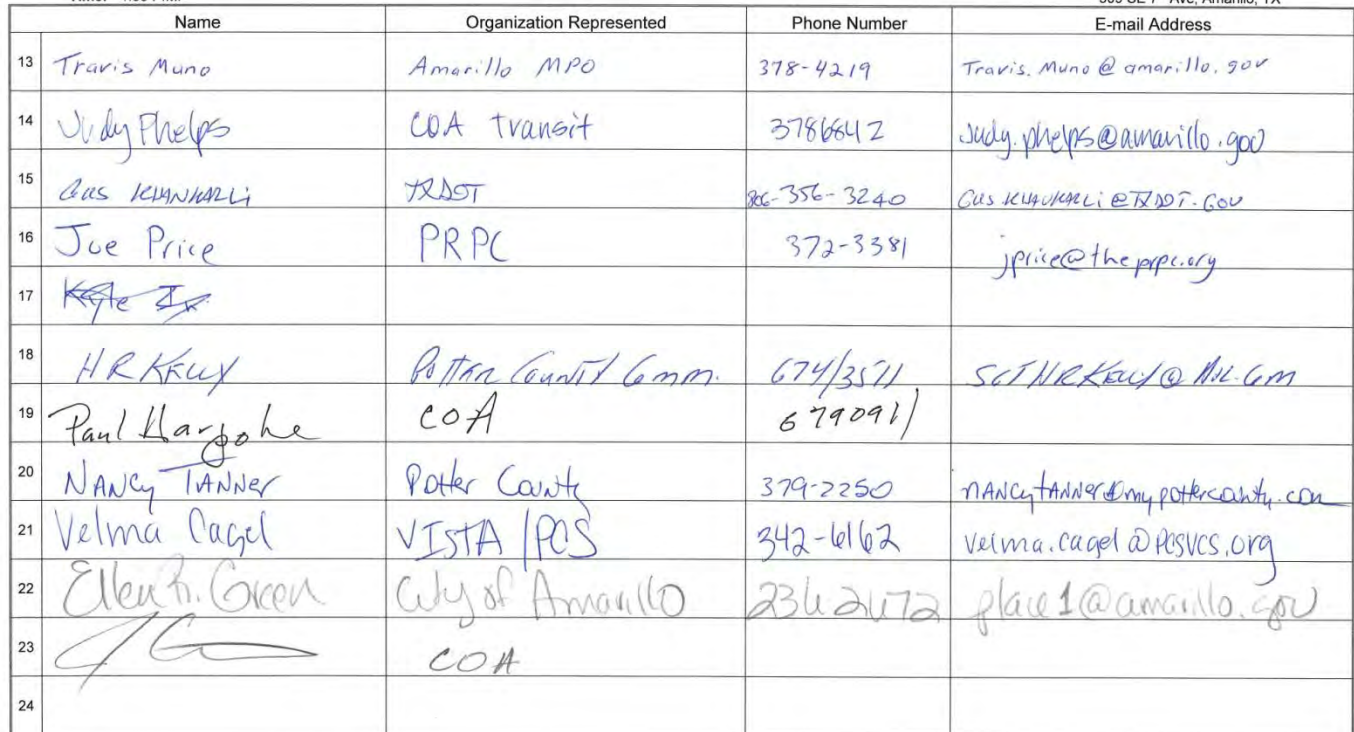 Name Organization Represented Phone Number E-mail Address
13 Travis Muno Amarillo MPO 378-4219 Travis.Muno@amarillo.gov
14 Judy Phelps COA Transit 3786842 Judy.phelps@amarillo.gov
15 Gus KHANKARLi TXDOT 806-356-3240
16 Joe Price PRPC 372-3381 jprice@theprpc.org
17 Kyle
18 HR KELLY Potter County Comm. 674/3511
19 Paul Harpole COA 6790911
20 NANCy TANNer Potter County 379-2250 nANCytANNer@mypottercounty.com
21 Velma Cagel VISTA/PCS 342-6162 velma.cagel@PCSVCS.org
22 Ellen R. Green City of Amarillo place1@amarillo.gov
23 COA
24